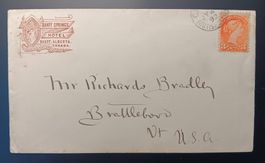 BANFF SPRINGS
HOTEL
BANFF, ALBERTA
CANADA.
Mr Richards Bradley
Brattleboro
Vt U.S.A